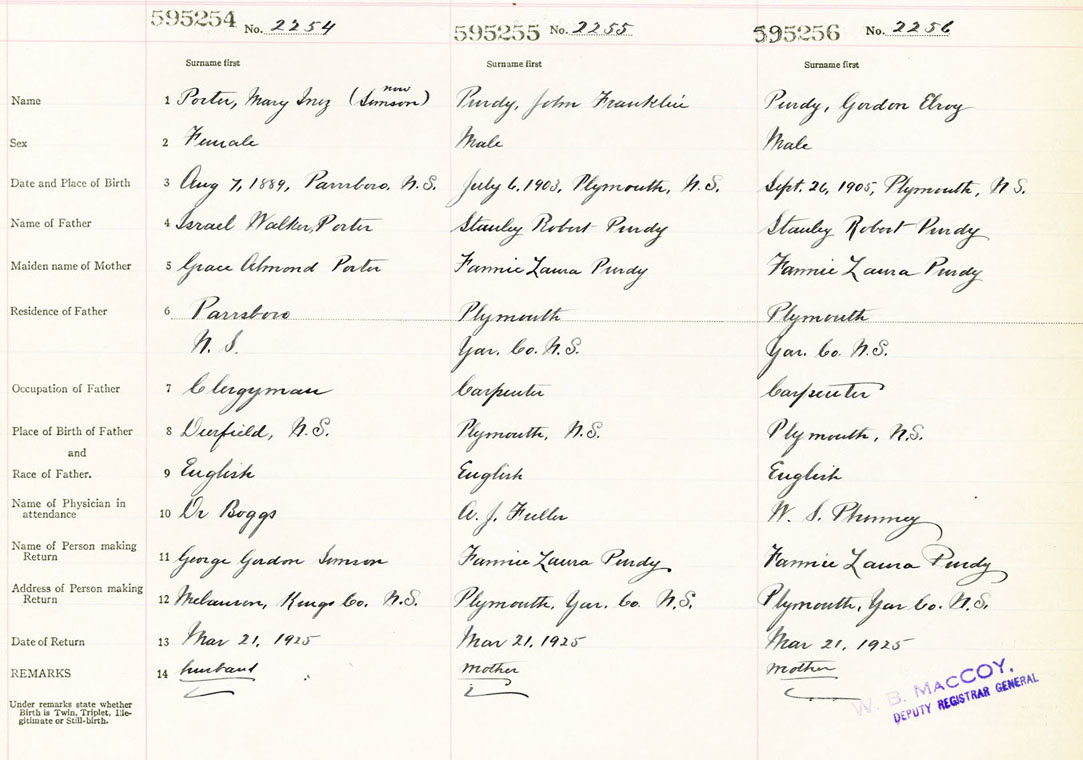 595254 No. 2254 595255 No. 2255 595256 No. 2256
Surname first Surname first Surname first
Name 1 Porter, Mary Inez (now Simson) Purdy, John Franklin Purdy, Gordon Elroy
Sex 2 Female Male Male
Date and Place of Birth 3 Aug 7, 1889, Parrsboro, N.S. July 6, 1903, Plymouth, N.S. Sept. 26, 1905, Plymouth, N.S.
Name of Father 4 Israel Walker, Porter Stanley Robert Purdy Stanley Robert Purdy
Maiden name of Mother 5 Grace Almond Porter Fannie Laura Purdy Fannie Laura Purdy
Residence of Father 6 Parrsboro Plymouth Plymouth
N.S. Yar. Co. N.S. Yar. Co. N.S.
Occupation of Father 7 Clergyman Carpenter Carpenter
Place of Birth of Father 8 Deerfield, N.S. Plymouth, N.S. Plymouth, N.S.
and
Race of Father. 9 English English English
Name of Physician in
attendance 10 Dr Boggs A. J. Fuller W. S. Phinney
Name of Person making
Return 11 George Gordon Simson Fannie Laura Purdy Fannie Laura Purdy
Address of Person making
Return 12 Kings Co. N.S. Plymouth, Yar. Co. N.S. Plymouth, Yar Co. N.S.
Date of Return 13 Mar 21, 1925 Mar 21, 1925 Mar 21, 1925
REMARKS 14 husband mother mother
W. B. MACCOY,
DEPUTY REGISTRAR GENERAL
Under remarks state whether
Birth is Twin, Triplet, Ille-
gitimate or Still-birth.